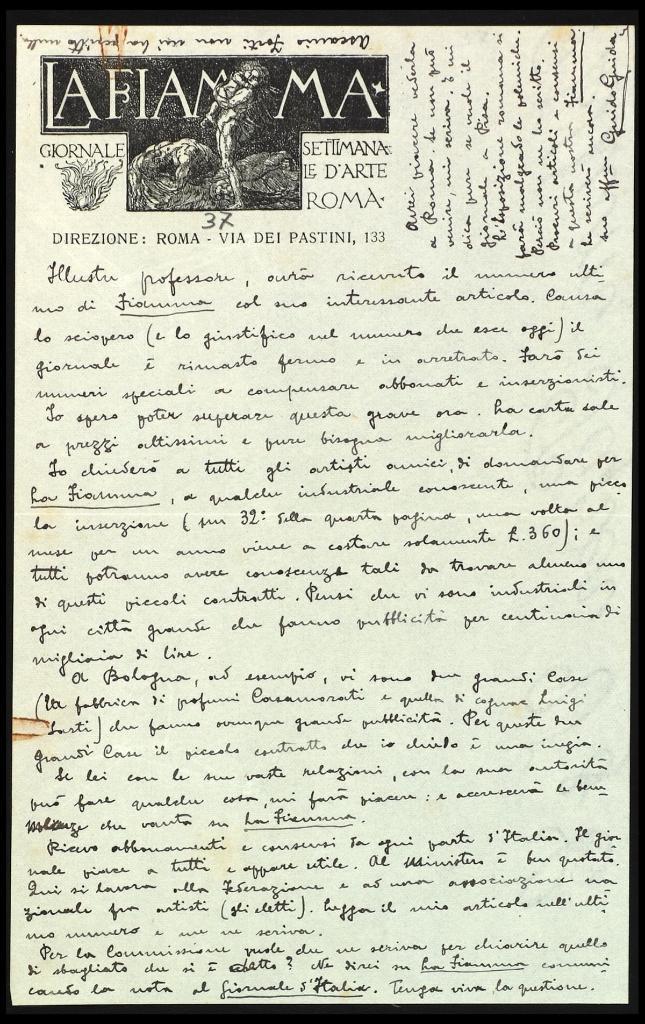 LA FIAMMA
GIORNALE SETTIMANA=
LE D'ARTE
ROMA
37
DIREZIONE: ROMA - VIA DEI PASTINI, 133
Illustre professore, avrà ricevuto il numero ulti-
mo di Fiamma col suo interessante articolo. Causa
lo sciopero (e lo giustifico nel numero che esce oggi) il
giornale è rimasto fermo e in arretrato. Farò dei
numeri speciali a compensare abbonati e inserzionisti.
Io spero poter superare questa grave ora. La carta sale
a prezzi altissimi e pure bisogna migliorarla.
Io chiederò a tutti gli artisti amici, di domandare per
La Fiamma, a qualche industriale conoscente, una picco
la inserzione (un 32º della quarta pagina, una volta al
mese per un anno viene a costare solamente £.360); e
tutti potranno avere conoscenze tali da trovare almeno uno
di questi piccoli contratti. Pensi che vi sono industriali in
ogni città grande che fanno pubblicità per centinaia di
migliaia di lire.
A Bologna, ad esempio, vi sono due grandi Case
(la fabbrica di profumi Casamorati e quella di cognac Luigi
Sarti) che fanno ovunque grande pubblicità. Per queste due
grandi Case il piccolo contratto che io chiedo è una inezia.
Se lei con le sue vaste relazioni, con la sua autorità
può fare qualche cosa, mi farà piacere: e accrescerà le bene
che vanta su La Fiamma.
Ricevo abbonamenti e consensi da ogni parte d'Italia. Il gior
nale piace a tutti e appare utile. Al Ministero è ben quotato.
Qui si lavora alla Federazione e ad una associazione na
zionale fra artisti (gli eletti). Legga il mio articolo nell'ulti
mo numero e me ne scriva.
Per la Commissione vuole che ne scriva per chiarire quello
di sbagliato che si è detto? Ne direi su La Fiamma comuni
cando la nota al Giornale d'Italia. Tenga viva la questione.
Avrei piacere vederla
a Roma. Se non può
venire, mi scriva. E mi
dica pure se vende il
giornale a Pisa.
L'esposizione romana si
farà malgrado le polemiche.
Perciò non ne ho scritto.
Procuri articoli e consensi
a questa nostra Fiamma
Le scriverò ancora.
suo affmo Guido Guida
Ascanio Forti non mi ha scritto nulla.